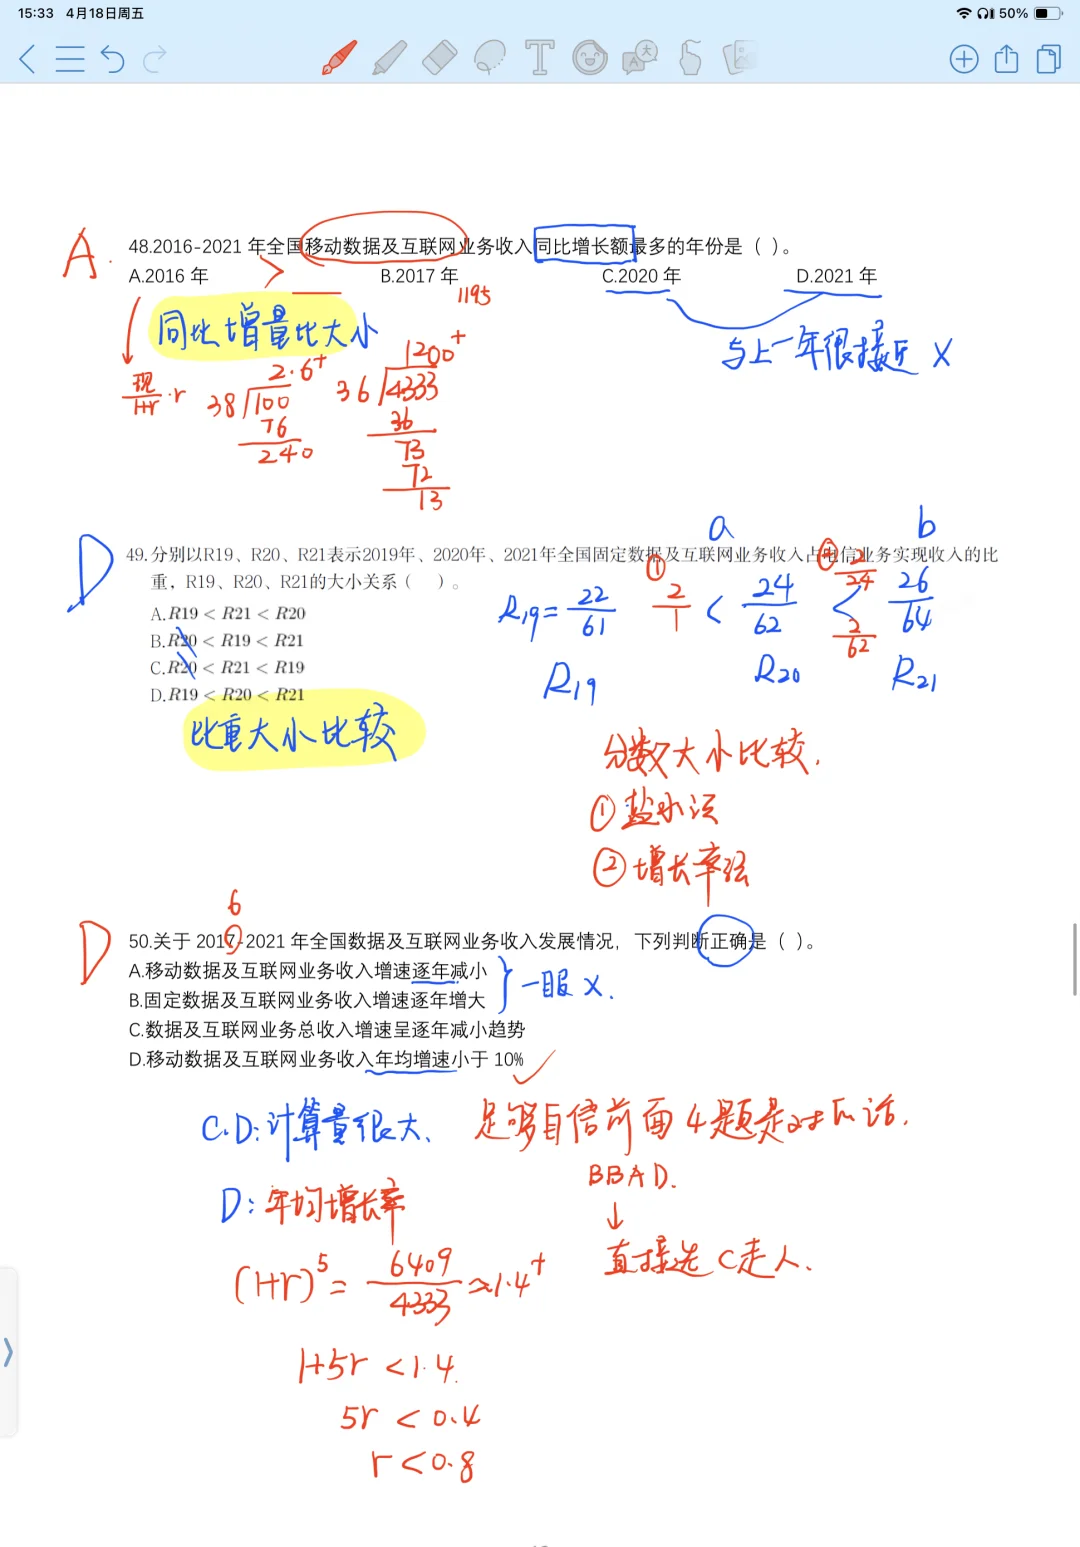 15:33 4月18日周五
50%
A
48.2016-2021 年全国移动数据及互联网业务收入同比增长额最多的年份是（ ）。
A.2016 年 > B.2017 年 C.2020 年 D.2021 年
1195
同比增量比大小
与上一年很接近 X
现/1+r ·r
2.6+
38/100
76
240
1200+
36/4333
36
73
72
13
D
a b
49.分别以R19、R20、R21表示2019年、2020年、2021年全国固定数据及互联网业务收入占电信业务实现收入的比
重，R19、R20、R21的大小关系（ ）。
A.R19 < R21 < R20
B.R20 < R19 < R21
C.R20 < R21 < R19
D.R19 < R20 < R21
R19=22/61 ① 2/1 < 24/62 < 26/64
② 2/24
2/62
R19 R20 R21
比重大小比较
分数大小比较.
①盐水法
②增长率法
6
D
50.关于 2017-2021 年全国数据及互联网业务收入发展情况，下列判断正确是（ ）。
A.移动数据及互联网业务收入增速逐年减小
B.固定数据及互联网业务收入增速逐年增大
一眼 X.
C.数据及互联网业务总收入增速呈逐年减小趋势
D.移动数据及互联网业务收入年均增速小于 10%
C.D:计算量很大.
足够自信前面4题是对的话.
BBAD.
↓
直接选C走人.
D:年均增长率
(1+r)^5=6409/4333≈1.4+
1+5r<1.4.
5r<0.4
r<0.8